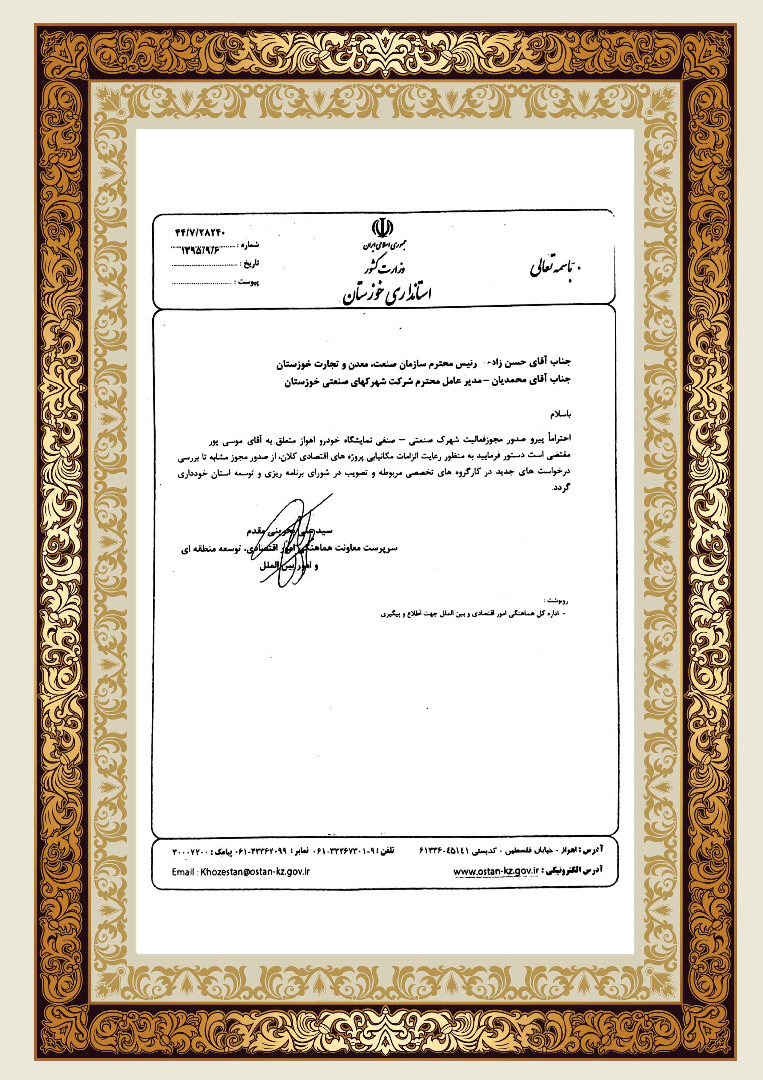 باسمه تعالی
جمهوری اسلامی ایران
وزارت کشور
استانداری خوزستان
۴۴/۷/۲۸۲۴۰
شماره :
۱۳۹۵/۹/۶
تاریخ :
پیوست :
جناب آقای حسن زاده رئیس محترم سازمان صنعت، معدن و تجارت خوزستان
جناب آقای محمدیان – مدیر عامل محترم شرکت شهرکهای صنعتی خوزستان
باسلام
احتراماً پیرو صدور مجوزفعالیت شهرک صنعتی – صنفی نمایشگاه خودرو اهواز متعلق به آقای موسی پور
مقتضی است دستور فرمایید به منظور رعایت الزامات مکانیابی پروژه های اقتصادی کلان، از صدور مجوز مشابه تا بررسی
درخواست های جدید در کارگروه های تخصصی مربوطه و تصویب در شورای برنامه ریزی و توسعه استان خودداری
گردد.
سید علی بحرینی مقدم
سرپرست معاونت هماهنگی امور اقتصادی، توسعه منطقه ای
و امور بین الملل
رونوشت :
- اداره کل هماهنگی امور اقتصادی و بین الملل جهت اطلاع و پیگیری
آدرس : اهواز - خیابان فلسطین - کدپستی ۴۵۱۴۱-۶۱۳۳۶ تلفن : ۹-۳۳۳۶۷۳۰۱-۰۶۱ نمابر : ۳۳۳۶۲۰۹۹-۰۶۱ پیامک : ۳۰۰۰۷۲۰۰
آدرس الکترونیکی : www.ostan-kz.gov.ir Email : Khozestan@ostan-kz.gov.ir